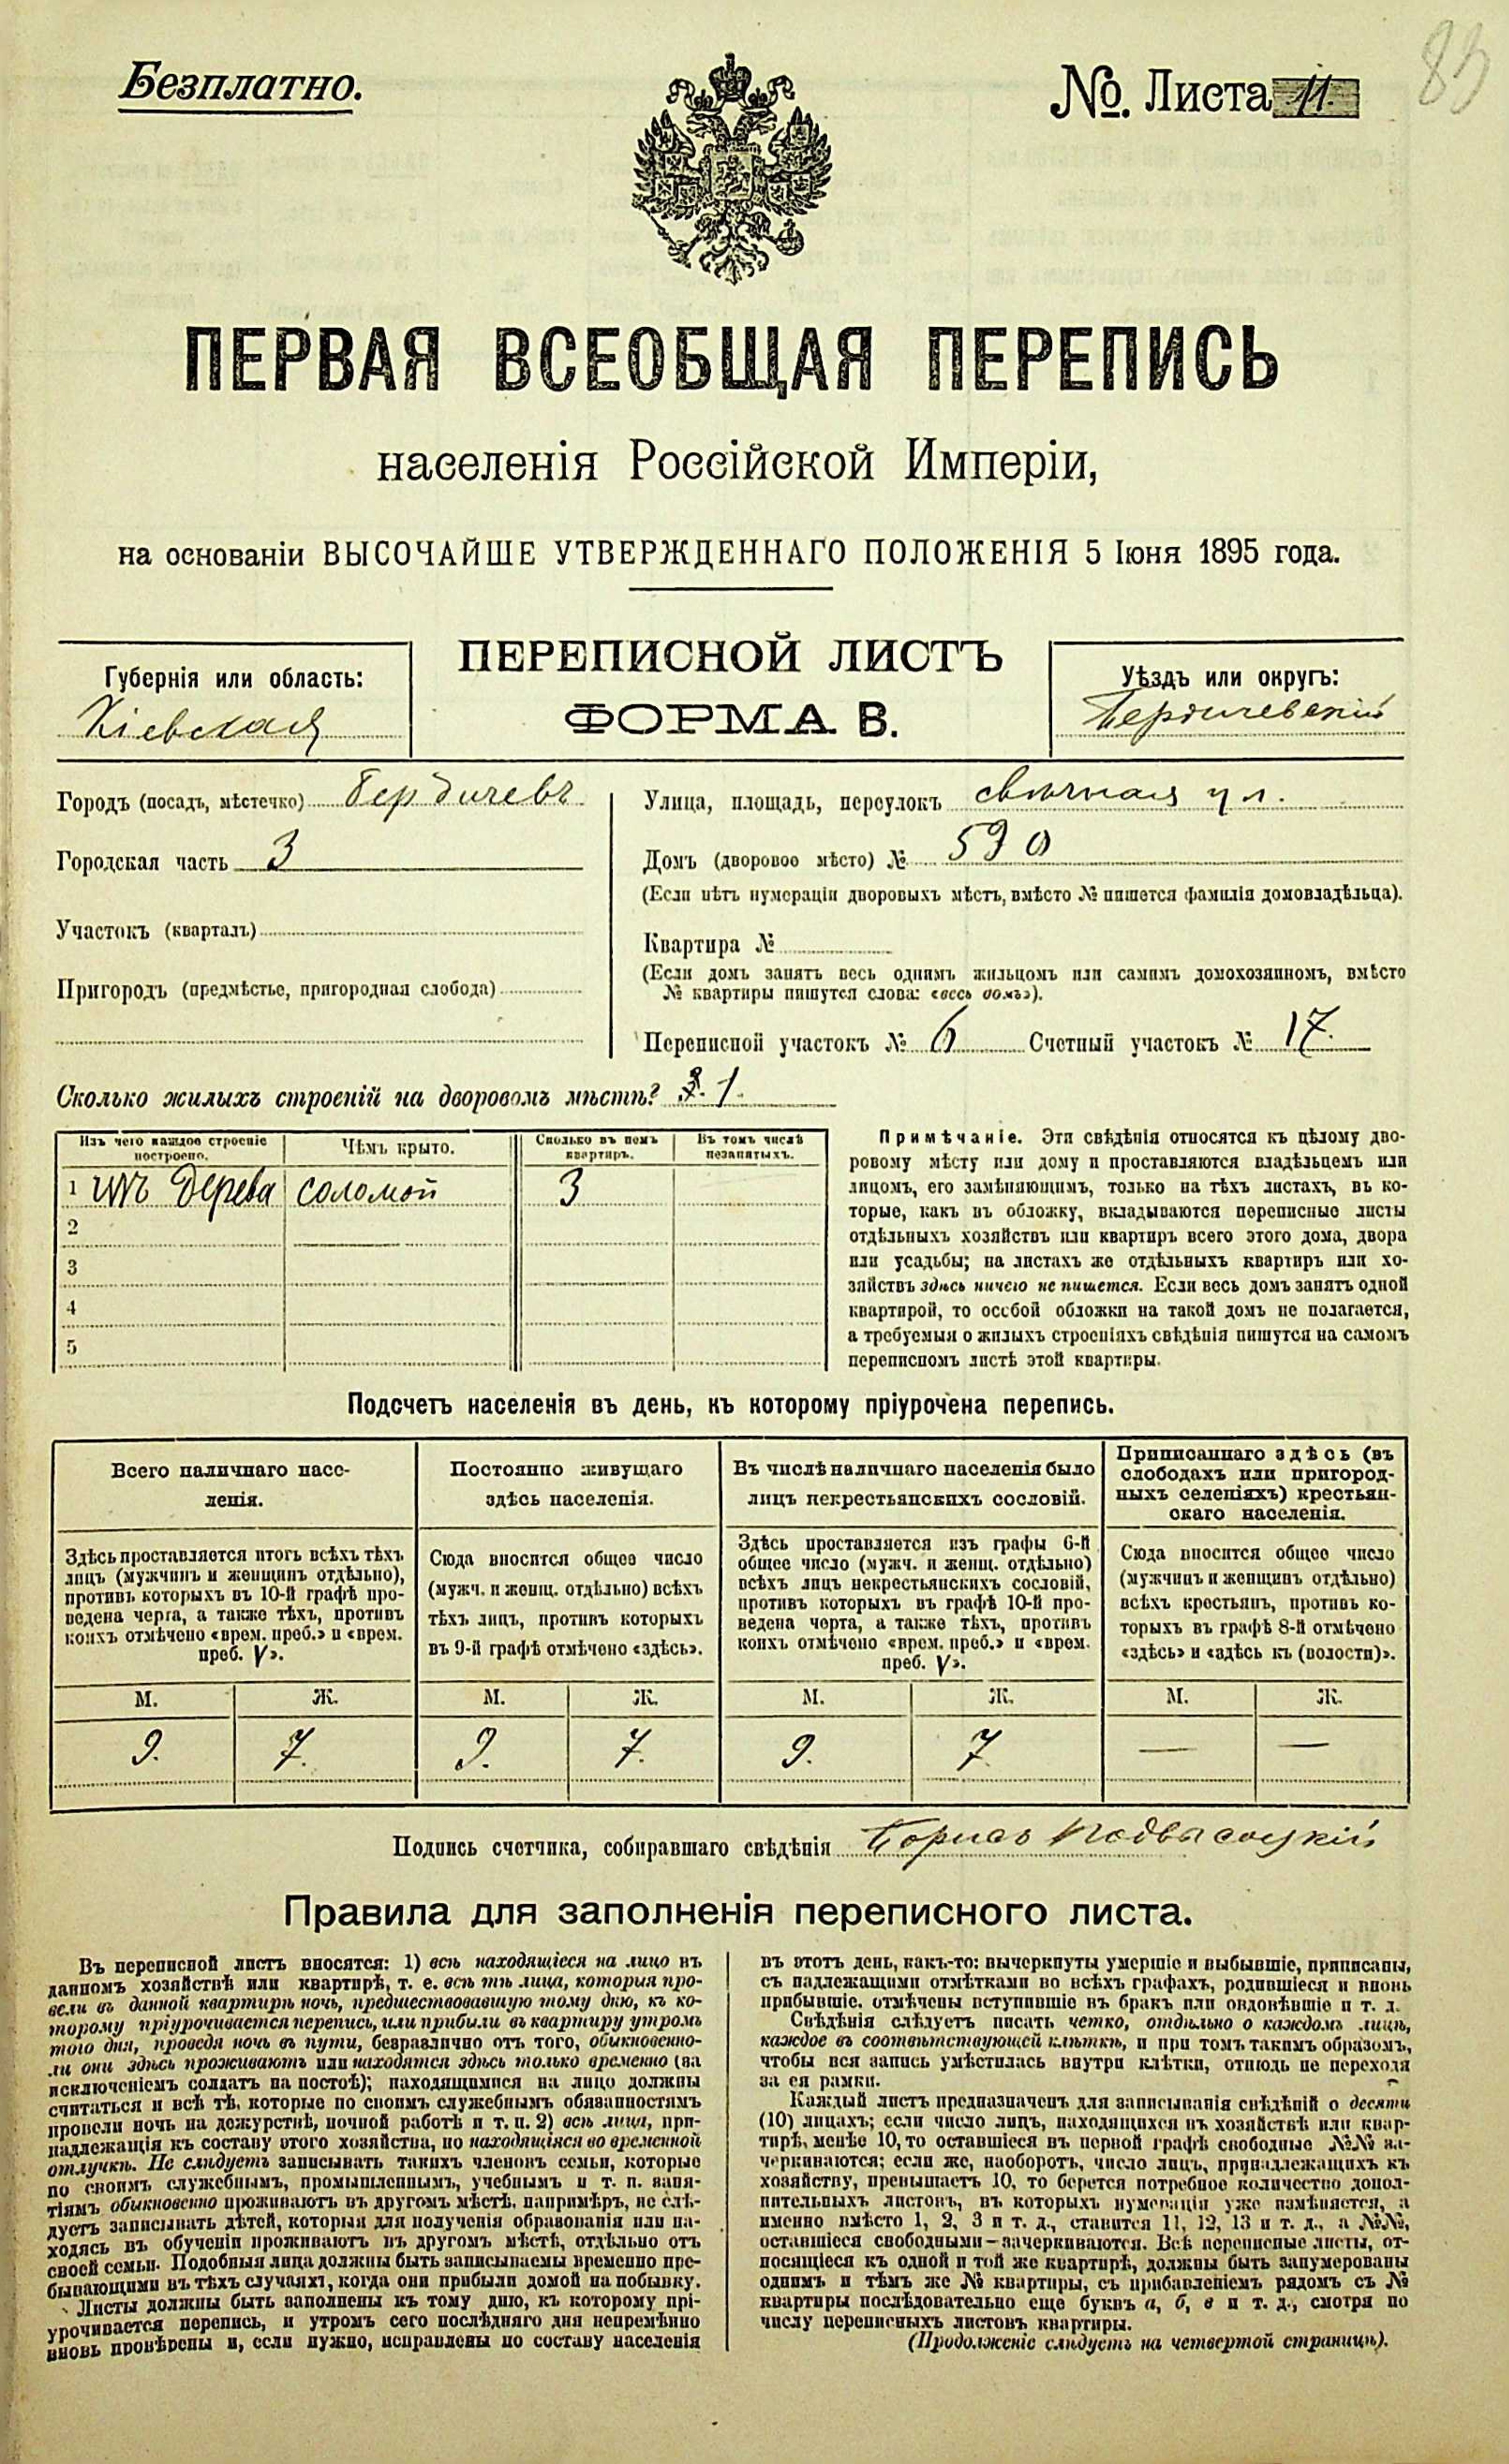 Безплатно.
№. Листа 11.
83
ПЕРВАЯ ВСЕОБЩАЯ ПЕРЕПИСЬ
населенія Россійской Имперіи,
на основаніи ВЫСОЧАЙШЕ УТВЕРЖДЕННАГО ПОЛОЖЕНІЯ 5 Іюня 1895 года.
ПЕРЕПИСНОЙ ЛИСТЪ
ФОРМА В.
Губернія или область:
Кіевская
Уѣздъ или округъ:
Бердичевскій
Городъ (посадъ, мѣстечко) Бердичевъ
Городская часть 3
Участокъ (кварталъ)
Пригородъ (предмѣстье, пригородная слобода)
Улица, площадь, переулокъ свѣчная ул.
Домъ (дворовое мѣсто) № 590
(Если нѣтъ нумераціи дворовыхъ мѣстъ, вмѣсто № пишется фамилія домовладѣльца).
Квартира №
(Если домъ занятъ весь однимъ жильцомъ или самимъ домохозяиномъ, вмѣсто
№ квартиры пишутся слова: «весь домъ»).
Переписной участокъ № 6 Счетный участокъ № 17.
Сколько жилыхъ строеній на дворовомъ мѣстѣ? 1.
Изъ чего каждое строеніе
построено.
Чѣмъ крыто.
Сколько въ немъ
квартиръ.
Въ томъ числѣ
незанятыхъ.
1 изъ дерева соломой 3
2
3
4
5
Примѣчаніе. Эти свѣдѣнія относятся къ цѣлому дво-
ровому мѣсту или дому и проставляются владѣльцемъ или
лицомъ, его замѣняющимъ, только на тѣхъ листахъ, въ ко-
торые, какъ въ обложку, вкладываются переписные листы
отдѣльныхъ хозяйствъ или квартиръ всего этого дома, двора
или усадьбы; на листахъ же отдѣльныхъ квартиръ или хо-
зяйствъ здѣсь ничего не пишется. Если весь домъ занятъ одной
квартирой, то особой обложки на такой домъ не полагается,
а требуемыя о жилыхъ строеніяхъ свѣдѣнія пишутся на самомъ
переписномъ листѣ этой квартиры.
Подсчетъ населенія въ день, къ которому пріурочена перепись.
Всего наличнаго насе-
ленія.
Здѣсь проставляется итогъ всѣхъ тѣхъ
лицъ (мужчинъ и женщинъ отдѣльно),
противъ которыхъ въ 10-й графѣ про-
ведена черта, а также тѣхъ, противъ
коихъ отмѣчено «врем. преб.» и «врем.
преб. V».
Постоянно живущаго
здѣсь населенія.
Сюда вносится общее число
(мужч. и женщ. отдѣльно) всѣхъ
тѣхъ лицъ, противъ которыхъ
въ 9-й графѣ отмѣчено «здѣсь».
Въ числѣ наличнаго населенія было
лицъ некрестьянскихъ сословій.
Здѣсь проставляется изъ графы 6-й
общее число (мужч. и женщ. отдѣльно)
всѣхъ лицъ некрестьянскихъ сословій,
противъ которыхъ въ графѣ 10-й про-
ведена черта, а также тѣхъ, противъ
коихъ отмѣчено «врем. преб.» и «врем.
преб. V».
Приписаннаго здѣсь (въ
слободахъ или пригород-
ныхъ селеніяхъ) крестьян-
скаго населенія.
Сюда вносится общее число
(мужчинъ и женщинъ отдѣльно)
всѣхъ крестьянъ, противъ ко-
торыхъ въ графѣ 8-й отмѣчено
«здѣсь» и «здѣсь къ (волости)».
М. Ж. М. Ж. М. Ж. М. Ж.
9. 7. 9. 7. 9. 7 — —
Подпись счетчика, собиравшаго свѣдѣнія Борисъ Подвысоцкій
Правила для заполненія переписного листа.
Въ переписной листъ вносятся: 1) всѣ находящіеся на лицо въ
данномъ хозяйствѣ или квартирѣ, т. е. всѣ тѣ лица, которыя про-
вели въ данной квартирѣ ночь, предшествовавшую тому дню, къ ко-
торому пріурочивается перепись, или прибыли въ квартиру утромъ
того дня, проведя ночь въ пути, безразлично отъ того, обыкновенно-
ли они здѣсь проживаютъ или находятся здѣсь только временно (за
исключеніемъ солдатъ на постоѣ); находящимися на лицо должны
считаться и всѣ тѣ, которые по своимъ служебнымъ обязанностямъ
провели ночь на дежурствѣ, ночной работѣ и т. п. 2) всѣ лица, при-
надлежащія къ составу этого хозяйства, но находящіяся во временной
отлучкѣ. Не слѣдуетъ записывать такихъ членовъ семьи, которые
по своимъ служебнымъ, промышленнымъ, учебнымъ и т. п. заня-
тіямъ обыкновенно проживаютъ въ другомъ мѣстѣ, напримѣръ, не слѣ-
дуетъ записывать дѣтей, которыя для полученія образованія или на-
ходясь въ обученіи проживаютъ въ другомъ мѣстѣ, отдѣльно отъ
своей семьи. Подобныя лица должны быть записываемы временно пре-
бывающими въ тѣхъ случаяхъ, когда они прибыли домой на побывку.
Листы должны быть заполнены къ тому дню, къ которому прі-
урочивается перепись, и утромъ сего послѣдняго дня непремѣнно
вновь провѣрены и, если нужно, исправлены по составу населенія
въ этотъ день, какъ-то: вычеркнуты умершіе и выбывшіе, приписаны,
съ надлежащими отмѣтками во всѣхъ графахъ, родившіеся и вновь
прибывшіе, отмѣчены вступившіе въ бракъ или овдовѣвшіе и т. д.
Свѣдѣнія слѣдуетъ писать четко, отдѣльно о каждомъ лицѣ,
каждое въ соотвѣтствующей клѣткѣ, и при томъ такимъ образомъ,
чтобы вся запись умѣстилась внутри клѣтки, отнюдь не переходя
за ея рамки.
Каждый листъ предназначенъ для записыванія свѣдѣній о десяти
(10) лицахъ; если число лицъ, находящихся въ хозяйствѣ или квар-
тирѣ, менѣе 10, то оставшіеся въ первой графѣ свободные №№ за-
черкиваются; если же, наоборотъ, число лицъ, принадлежащихъ къ
хозяйству, превышаетъ 10, то берется потребное количество допол-
нительныхъ листовъ, въ которыхъ нумерація уже измѣняется, а
именно вмѣсто 1, 2, 3 и т. д., ставится 11, 12, 13 и т. д., а №№,
оставшіеся свободными—зачеркиваются. Всѣ переписные листы, от-
носящіеся къ одной и той же квартирѣ, должны быть занумерованы
однимъ и тѣмъ же № квартиры, съ прибавленіемъ рядомъ съ №
квартиры послѣдовательно еще буквъ а, б, в и т. д., смотря по
числу переписныхъ листовъ квартиры.
(Продолженіе слѣдуетъ на четвертой страницѣ).